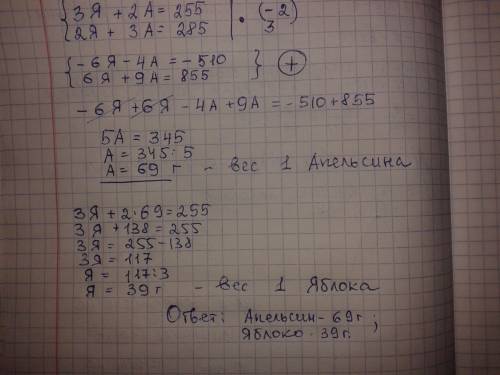 3Я + 2А = 255 | · (-2)
2Я + 3А = 285 | 3
-6Я - 4А = -510
6Я + 9А = 855 +
-6Я + 6Я - 4А + 9А = -510 + 855
5А = 345
А = 345 : 5
А = 69 г - вес 1 Апельсина
3Я + 2·69 = 255
3Я + 138 = 255
3Я = 255 - 138
3Я = 117
Я = 117 : 3
Я = 39 г - вес 1 Яблока
Ответ: Апельсин - 69г ;
Яблоко - 39г.